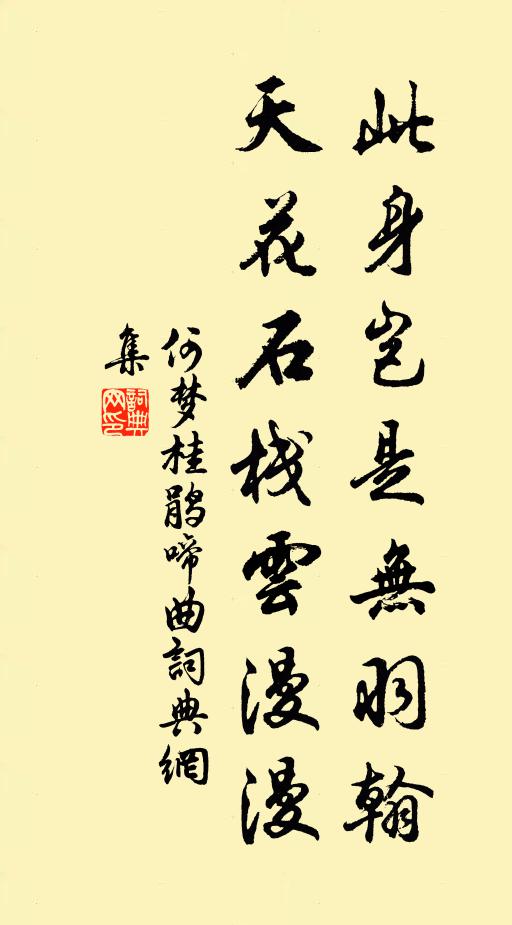 此身岂是無羽翰
天花石棧雲漫漫
何梦桂鹃啼曲詞典網
集
詞典
网印